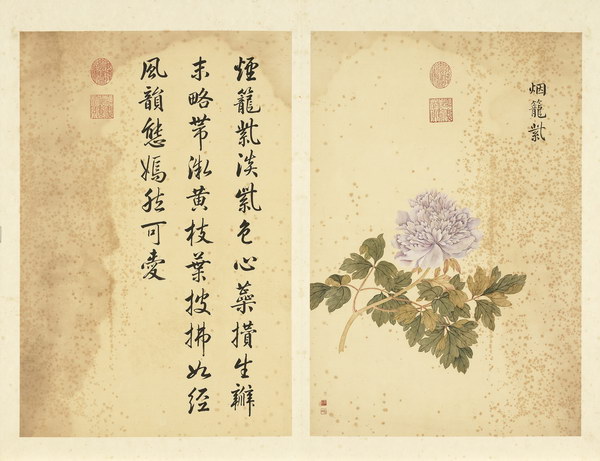 烟籠紫
煙籠紫淡紫色心蘂攅生瓣
末略帶微黄枝葉披拂如經
風韻態嫣然可愛